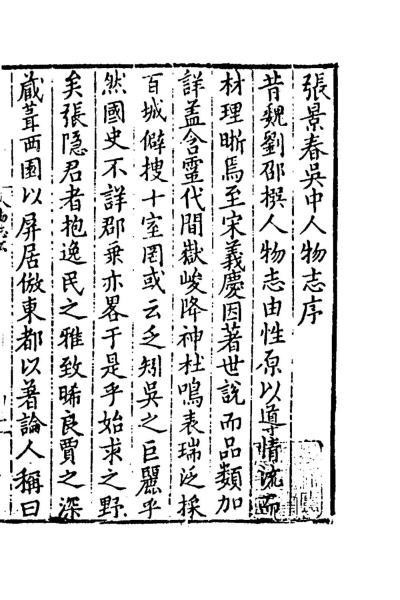 張景春吳中人物志序
昔魏劉邵撰人物志由性原以導情流而
材理晰焉至宋義慶因著世說而品類加
詳盖含靈代間嶽峻降神杜鳴表瑞泛採
百城僻搜十室罔或云乏矧吳之巨麗乎
然國史不詳郡乗亦畧于是乎始求之野
矣張隐君者抱逸民之雅致晞良賈之深
蔵葺西圃以屏居倣東都以著論人稱曰